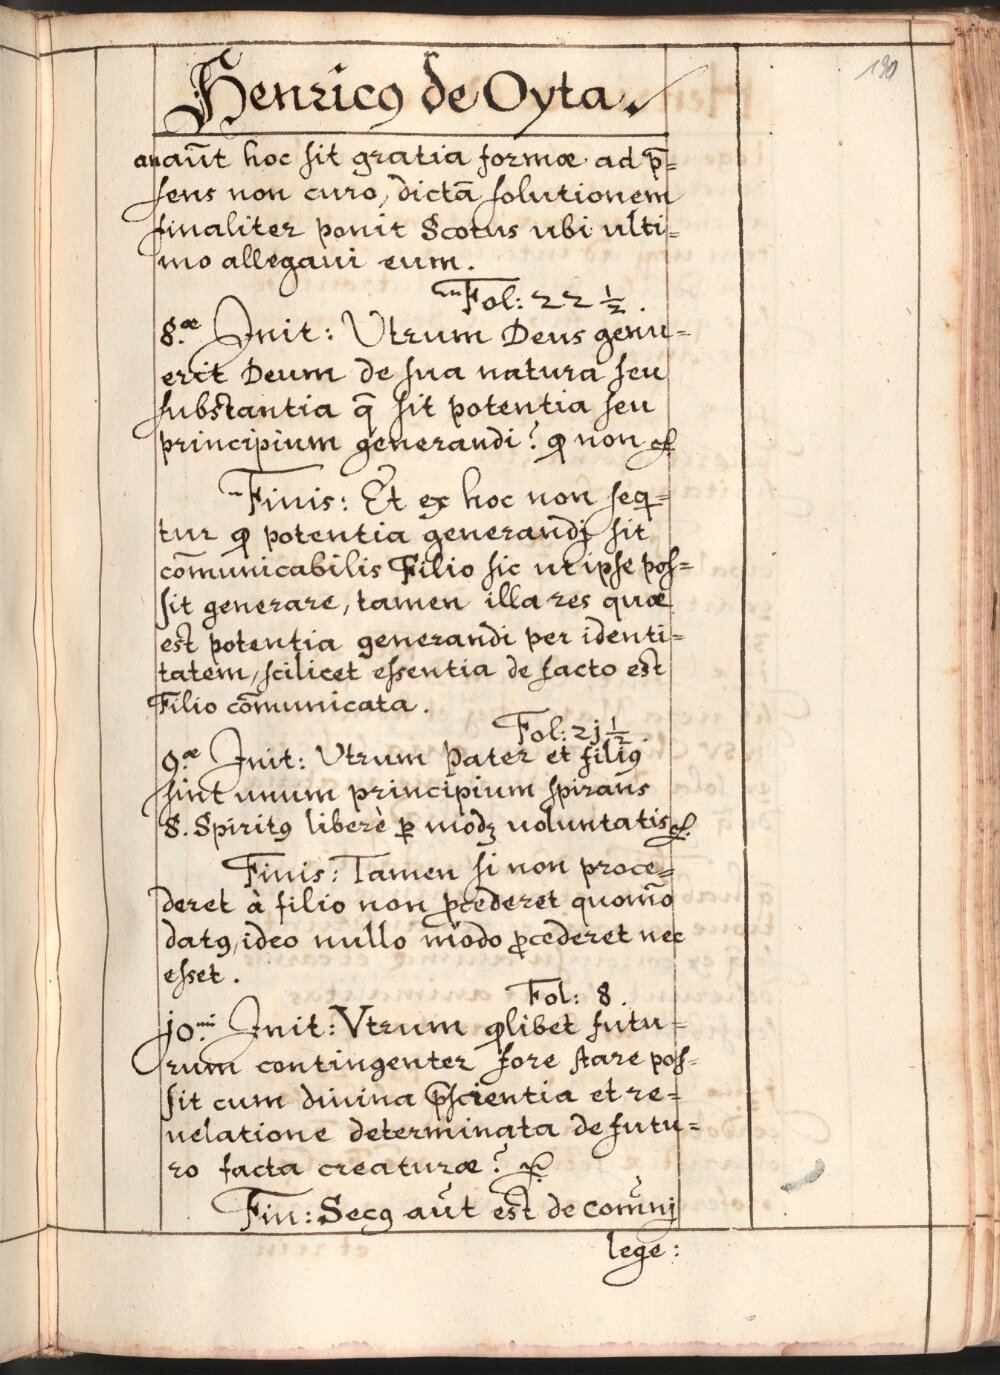 190
Henricꝰ de Oyta.
aut hoc sit gratia formæ ad p̄=
sens non curo, dictā solutionem
finaliter ponit Scotus ubi ulti=
mo allegaui eum.
Fol: 22 ½.
8.æ Init: Vtrum Deus genu=
erit Deum de sua natura seu
substantia q̄ sit potentia seu
principium generandi? ꝙ non
Finis: Et ex hoc non seq=
tur ꝙ potentia generandj sit
com̄unicabilis Filio sic ut ipse pos=
sit generare, tamen illa res quæ
est potentia generandi per identi=
tatem, scilicet essentia de facto est
Filio com̄unicata.
Fol: 2j ½.
9.æ Init: Vtrum Pater et filiꝰ
sint unum principium spirans
S. Spiritꝰ liberè ꝑ modꝫ voluntatis
Finis: Tamen si non proce=
deret à filio non ꝓcederet quom̄o
datꝰ, ideo nullo modo ꝓcederet nec
esset.
Fol: 8.
jo.mi Init: Vtrum ꝗlibet futu=
rum contingenter fore stare pos=
sit cum diuina p̄scientia et re=
uelatione determinata de futu=
ro facta creaturæ?
Fin: Secꝰ aūt est de com̄unj
lege: